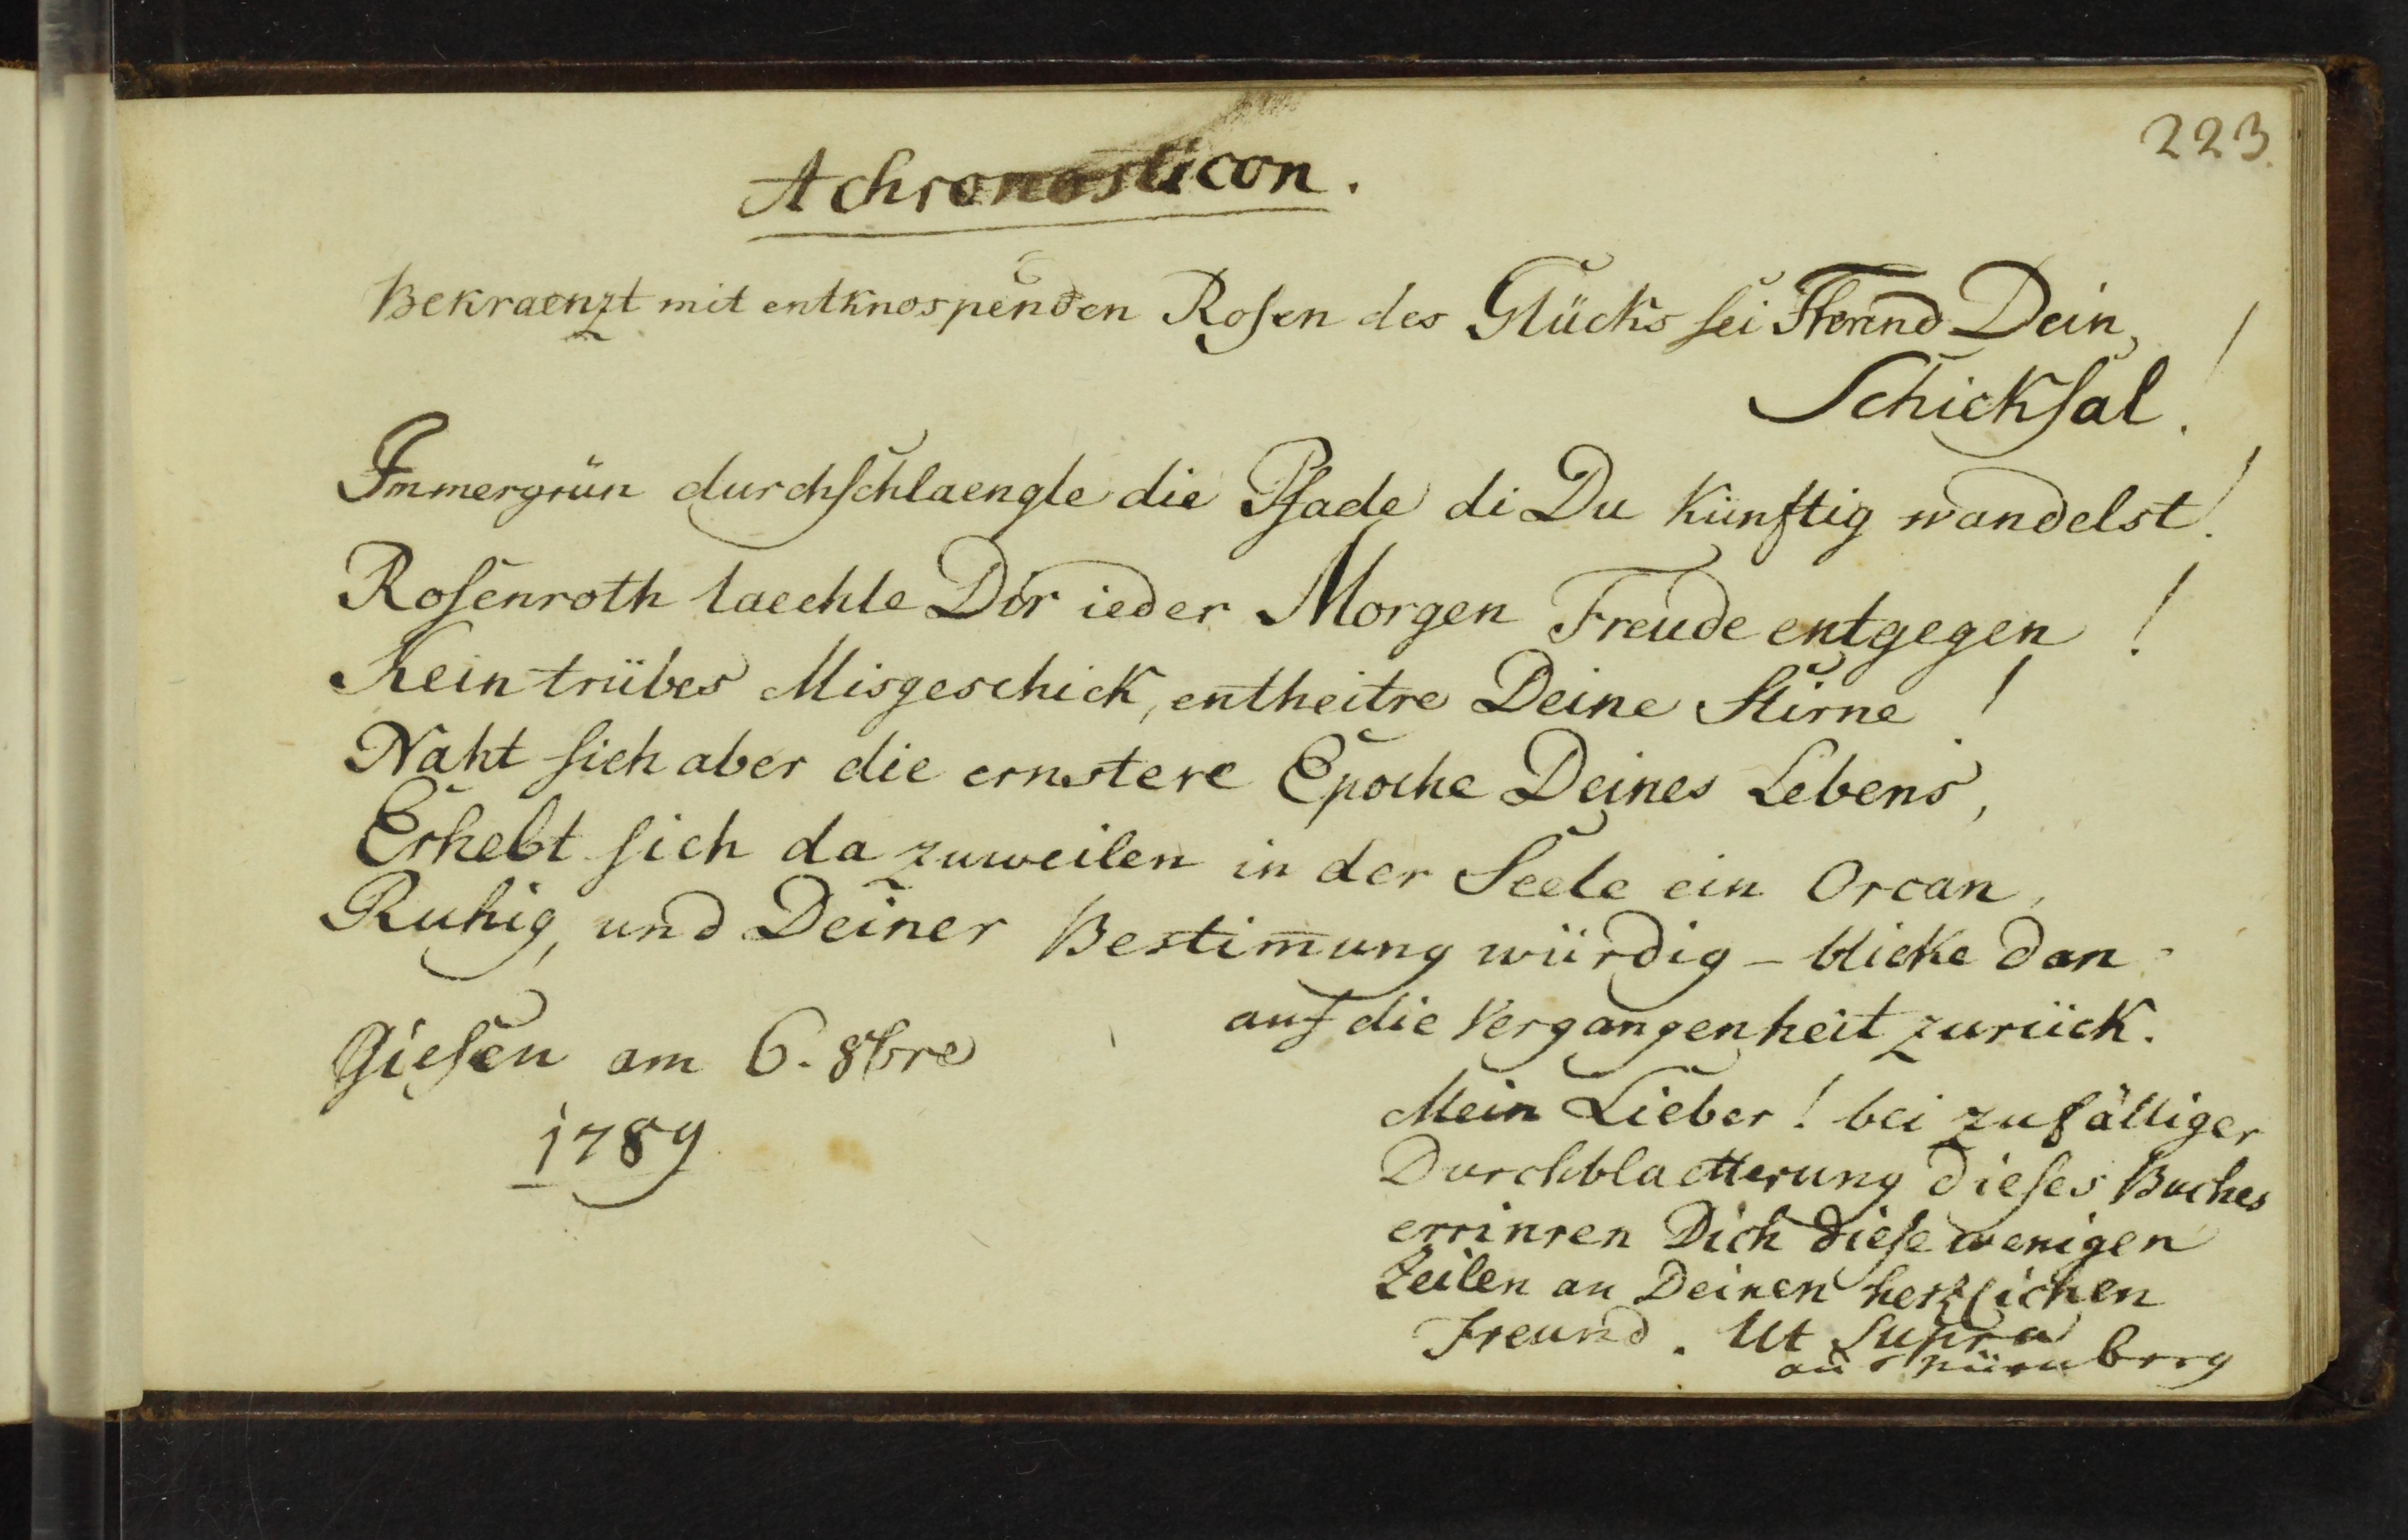 223.
Achronosticon.
Bekraenzt mit entknospenden Rosen des Glücks sei Freund Dein
Schicksal!
Immergrün durchschlaengle die Pfade di Du künftig wandelst!
Rosenroth laechle Dir ieder Morgen Freude entgegen!
Kein trübes Misgeschick, entheitre Deine Stirne!
Naht sich aber die ernstere Epoche Deines Lebens,
Erhebt sich da zuweilen in der Seele ein Orcan,
Ruhig, und Deiner Bestim̄ung würdig – blicke dan
auf die Vergangenheit zurück.
Giesen am 6. 8bre
1789
Mein Lieber! bei zufälliger
Durchblaetterung dieses Buches
errinren Dich diese wenigen
Zeilen an Deinen herzlichen
Freund. Ut Supra
aus Nürnberg